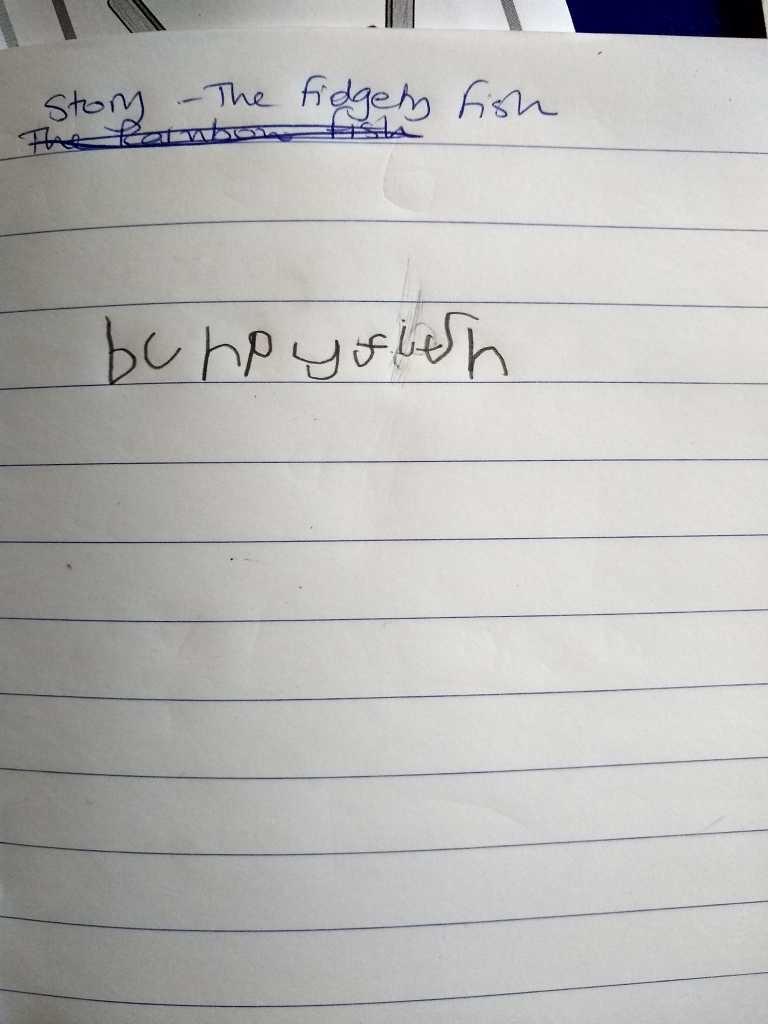 Story - The fidgety fish
The Rainbow fish
bunpy fish